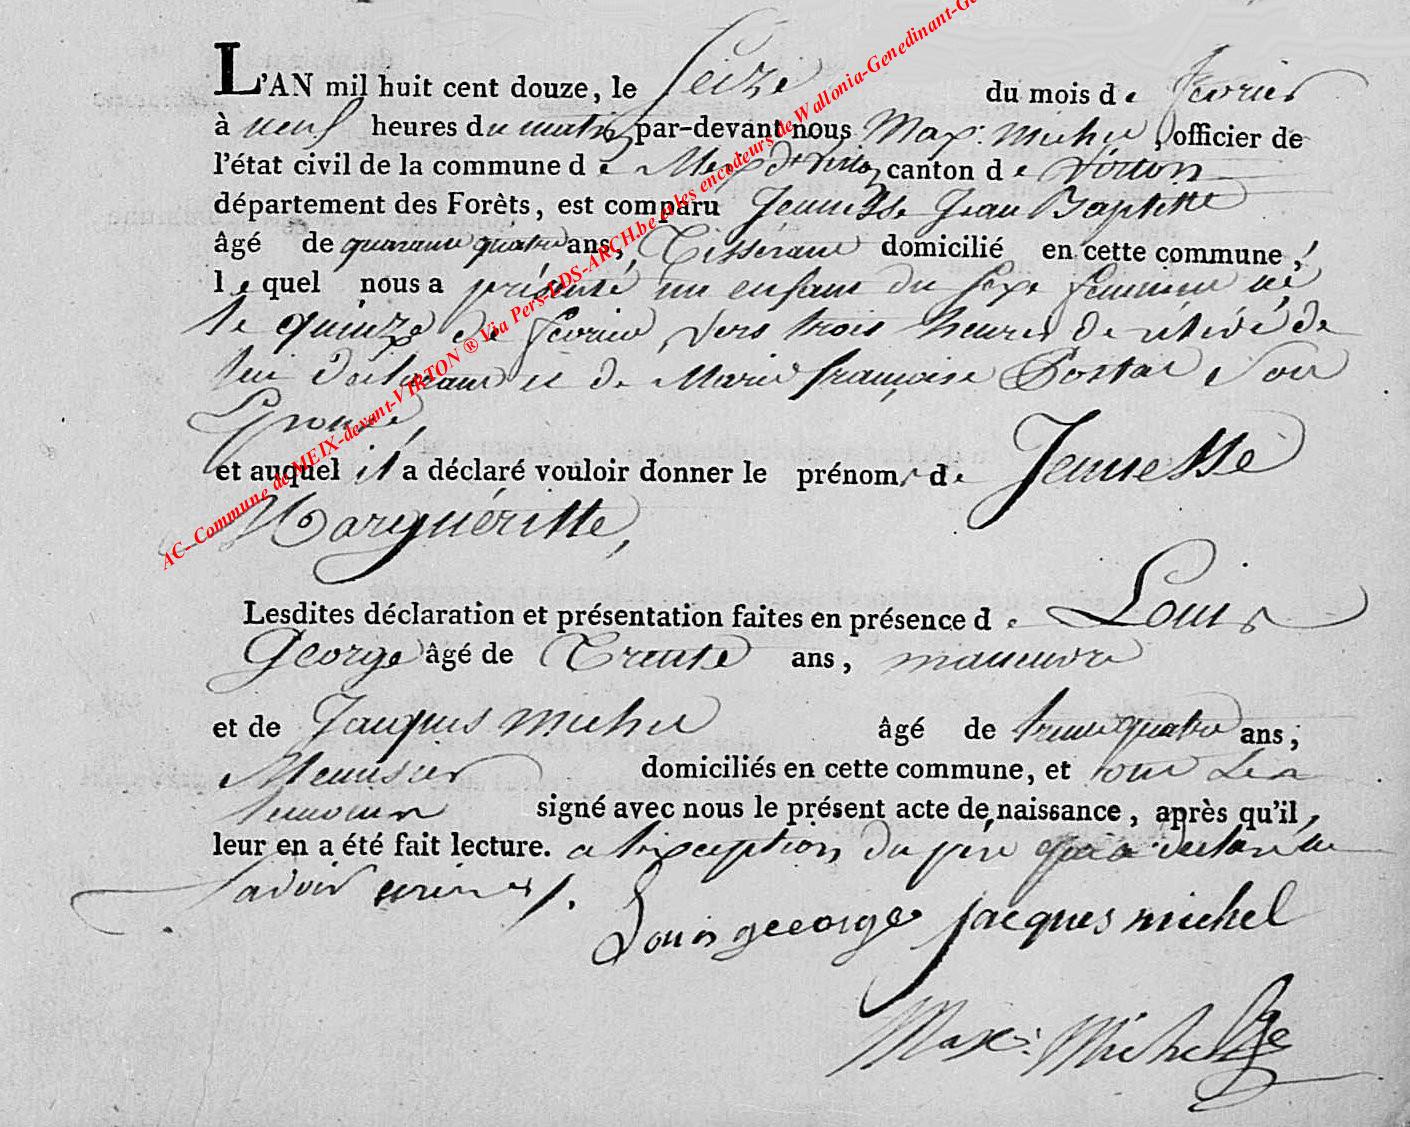 L'AN mil huit cent douze, le Seize du mois de fevrier
à neuf heures du matin par-devant nous Max: Michel, officier de
l'état civil de la commune de Meix dt Virton canton de Virton
département des Forêts, est comparu Jeanesse Jean Baptiste
âgé de quarante quatre ans, Tisserant domicilié en cette commune,
lequel nous a présenté un enfant du sexe feminin né
le quinze de fevrier vers trois heures de
lui déclarant et de Marie françoise Postal son
Epouse,
et auquel il a déclaré vouloir donner le prénoms de Jeanesse
Marguéritte,
Lesdites déclaration et présentation faites en présence de Louis
George âgé de Trente ans, maneuvre
et de Jacques Michel âgé de trente quatre ans,
Menusier domiciliés en cette commune, et ont Les
temoins signé avec nous le présent acte de naissance, après qu'il
leur en a été fait lecture. a l'exception du pére qui a declaré ne
savoir ecrire.
Louis george jacques michel
Max: Michel
AC_Commune de MEIX-devant-VIRTON ® Via Pers-LDS-ARCH.be et les encodeurs de Wallonia-Genedinant-Gen